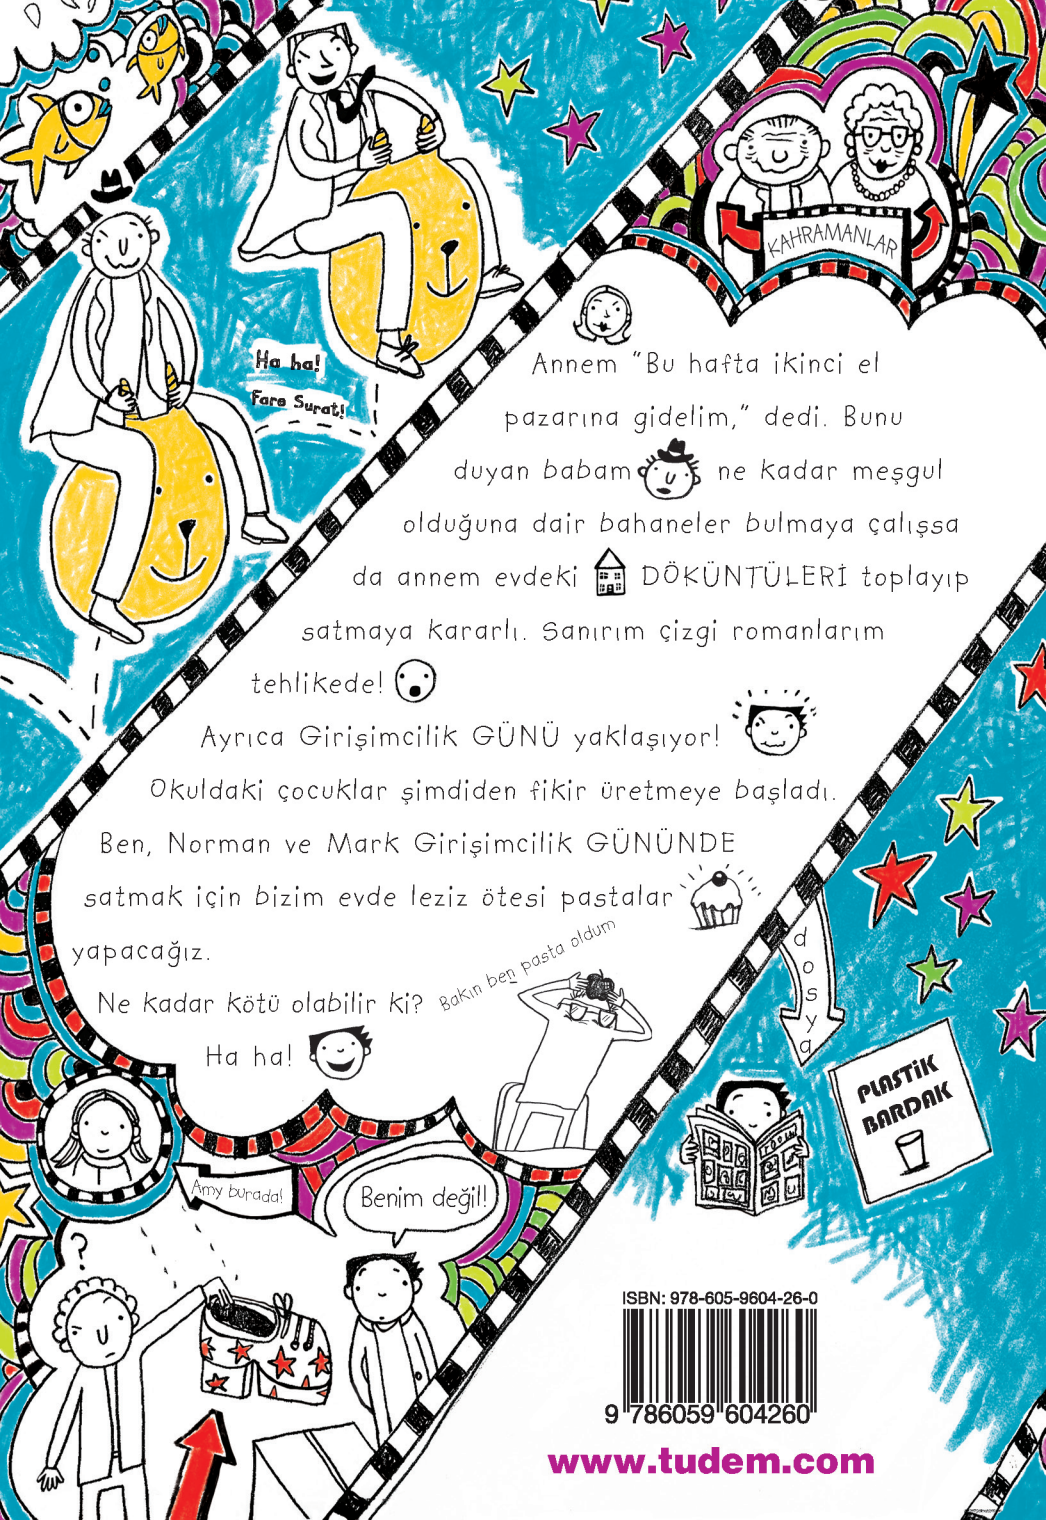 KAHRAMANLAR
Ha ha!
Fare Surat!
Annem "Bu hafta ikinci el
pazarına gidelim," dedi. Bunu
duyan babam ne kadar meşgul
olduğuna dair bahaneler bulmaya çalışsa
da annem evdeki DÖKÜNTÜLERİ toplayıp
satmaya kararlı. Sanırım çizgi romanlarım
tehlikede!
Ayrıca Girişimcilik GÜNÜ yaklaşıyor!
Okuldaki çocuklar şimdiden fikir üretmeye başladı.
Ben, Norman ve Mark Girişimcilik GÜNÜNDE
satmak için bizim evde leziz ötesi pastalar
yapacağız.
Ne kadar kötü olabilir ki?
Ha ha!
Bakın ben pasta oldum
dosya
PLASTİK
BARDAK
Amy burada!
Benim değil!
?
ISBN: 978-605-9604-26-0
9 786059 604260
www.tudem.com